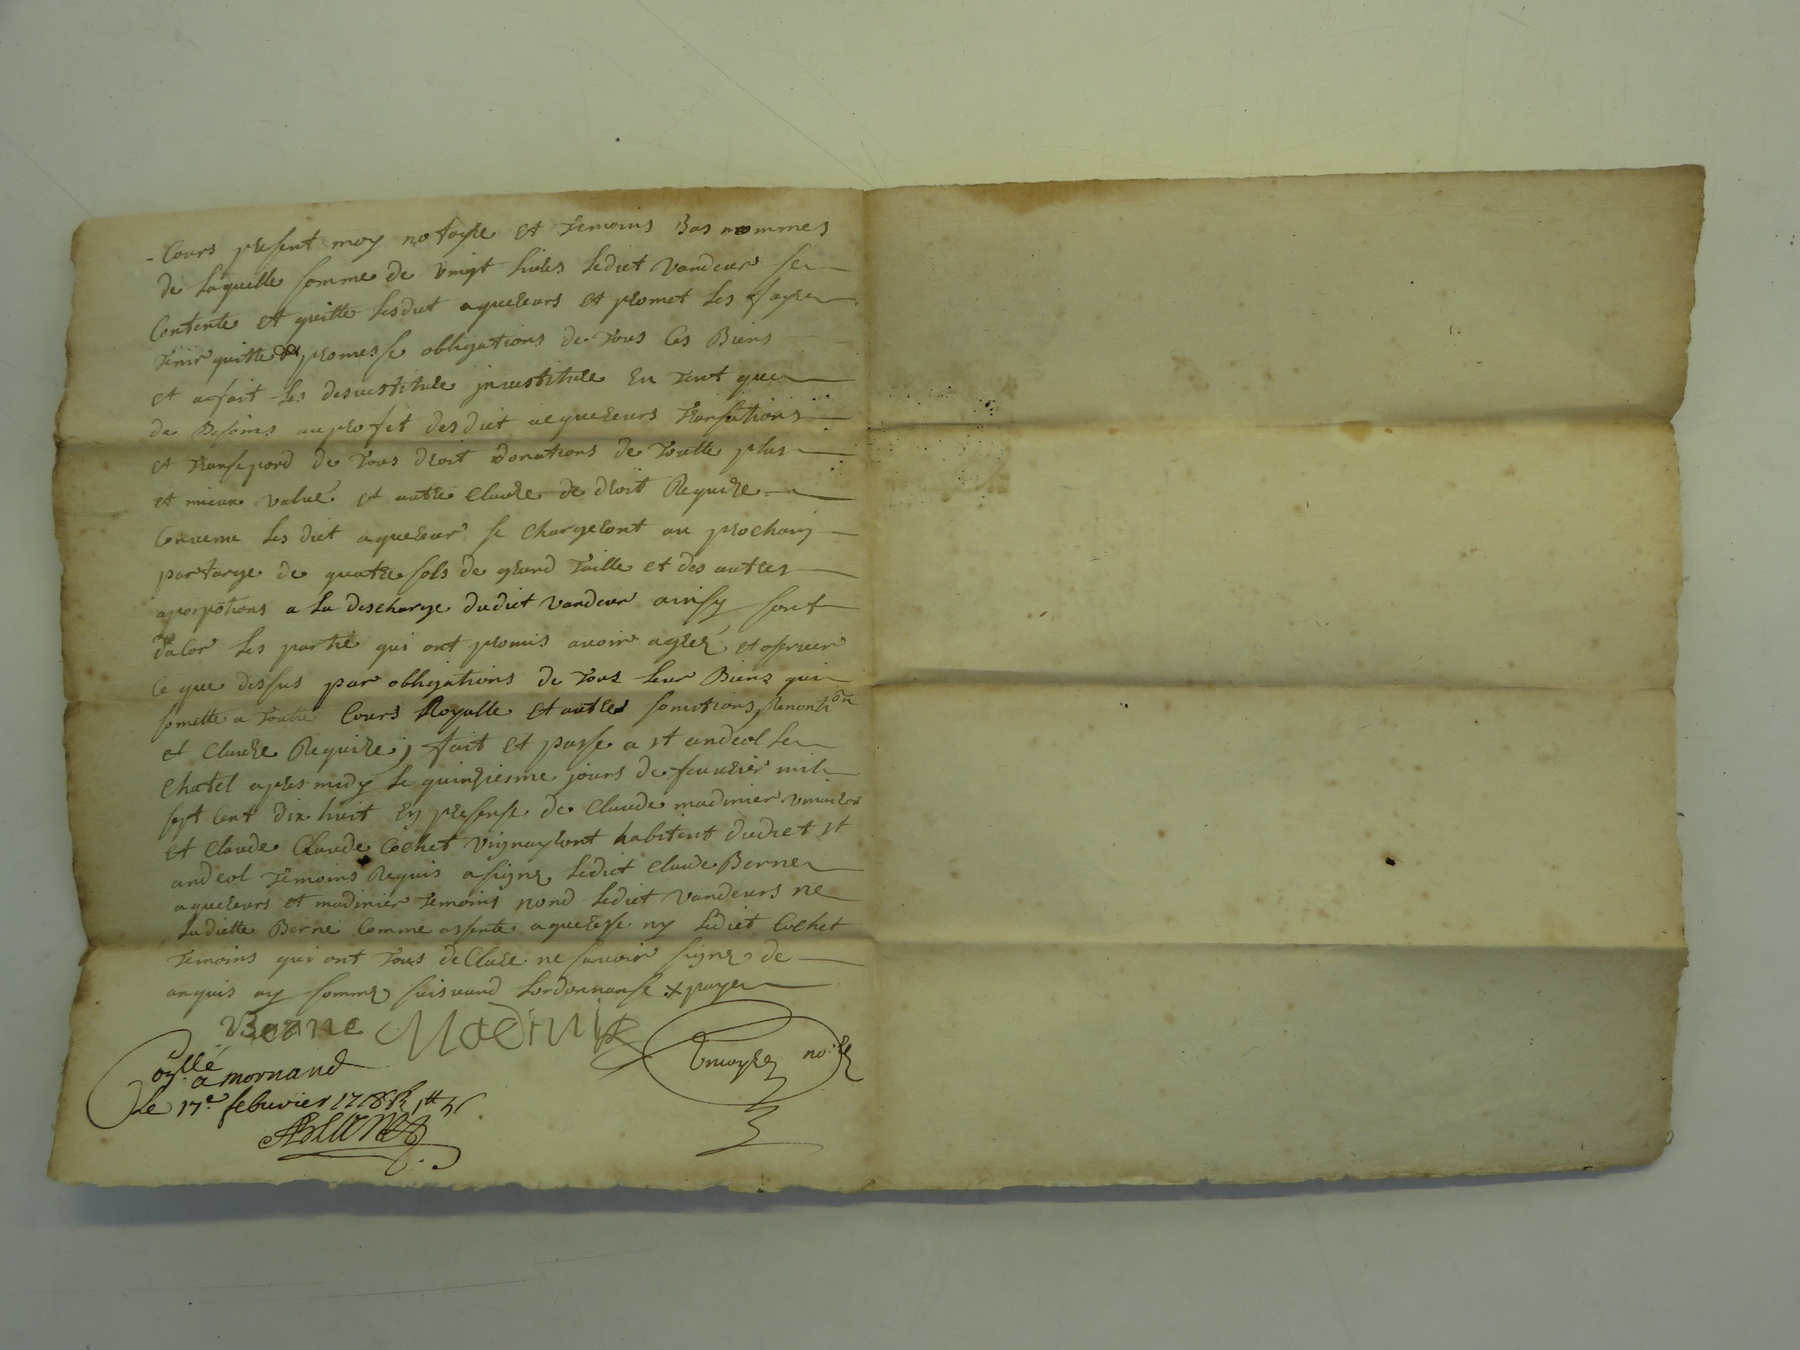 Cours present moy notayre et temoins Bas nommes
de laquelle somme de vingt livres ledict vandeur se
contente et quitte lesdict aquereurs et promet les fayre
tenir quitte promesse obligations de tous ces Biens
et a fait les desvestiture jnvestiture en tent que
de Besoins au profit desdict acquereurs transations
et transpord de tous droit donations de toutte plus
et mieux value et autre clauze de droit Requize
Convenu les dict aquereur se chargeront au prochain
partarge de quatre sols de grand taille et des autres
aporpotions a la descharge dudict vandeur ainsy sont
dalor les partie qui ont promis avoir agreé et observer
ce que dessus par obligations de tous leur Biens qui
somette a toutte Cours Royalle et autres somitions, Renontion
et clauze Requize, fait et passe a st andeol le
chatel apres midy le quinziesme jours de fevrier mil
sept cent dix huit en presense de Claude madinier vinaier
et Claude Claude Cochet vignayront habitent dudict st
andeol temoins Requis a signe ledict Claude Berne
aquereurs et madinier temoins nond ledict vandeurs ne
ladiette Berne Comme assente aqueresse ny ledict Cochet
temoins qui ont tous declare ne savoir signe de
anquis ay somme suivand lordonnanse x paye
Berne Madinier
nore
ollé a mornand
Le 17e febuvier 1718 R 1tt